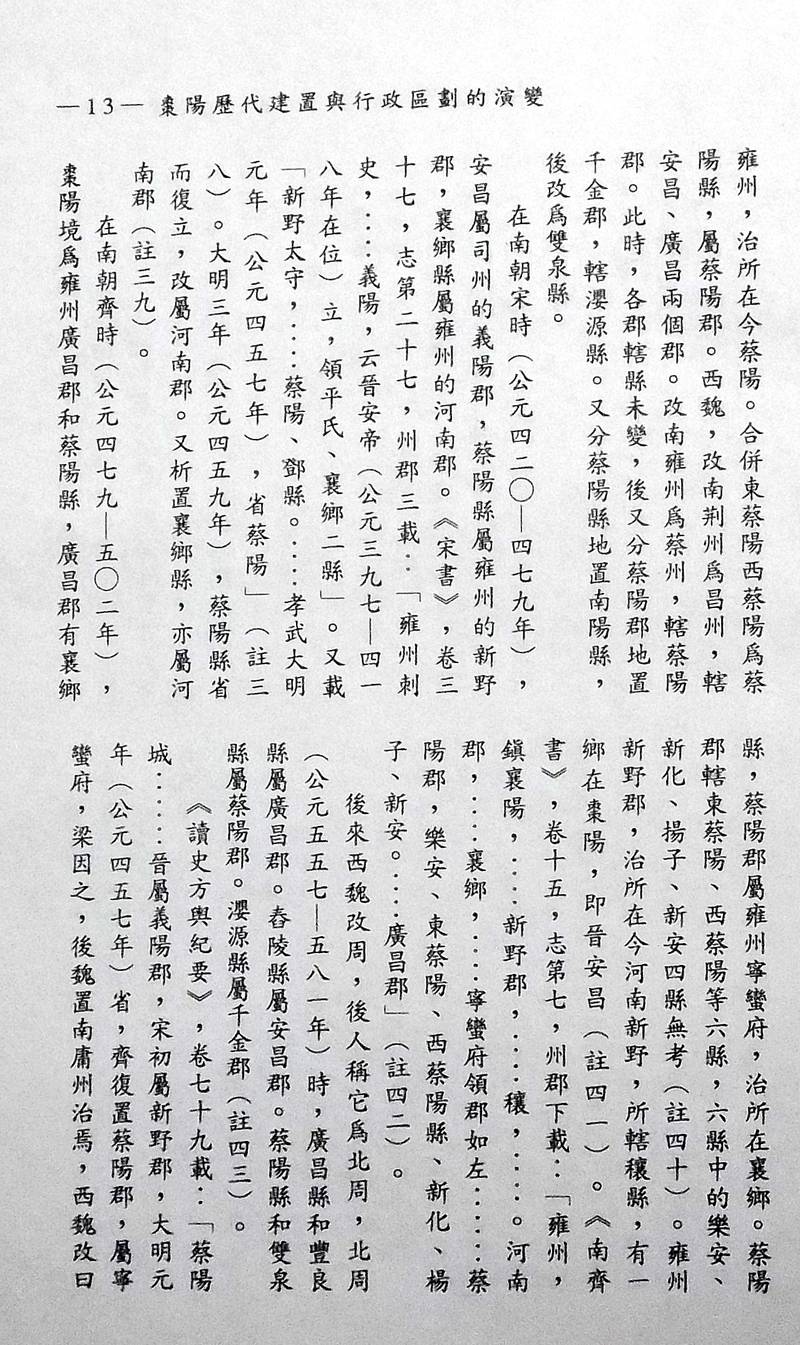 —13— 棗陽歷代建置與行政區劃的演變
雍州，治所在今蔡陽。合併東蔡陽西蔡陽爲蔡
陽縣，屬蔡陽郡。西魏，改南荆州爲昌州，轄
安昌、廣昌兩個郡。改南雍州爲蔡州，轄蔡陽
郡。此時，各郡轄縣未變，後又分蔡陽郡地置
千金郡，轄瀴源縣。又分蔡陽縣地置南陽縣，
後改爲雙泉縣。
在南朝宋時（公元四二〇—四七九年），
安昌屬司州的義陽郡，蔡陽縣屬雍州的新野
郡，襄鄉縣屬雍州的河南郡。《宋書》，卷三
十七，志第二十七，州郡三載：「雍州刺
史，……義陽，云晉安帝（公元三九七—四一
八年在位）立，領平氏、襄鄉二縣」。又載
「新野太守，……蔡陽、鄧縣。……孝武大明
元年（公元四五七年），省蔡陽」（註三
八）。大明三年（公元四五九年），蔡陽縣省
而復立，改屬河南郡。又析置襄鄉縣，亦屬河
南郡（註三九）。
在南朝齊時（公元四七九—五〇二年），
棗陽境爲雍州廣昌郡和蔡陽縣，廣昌郡有襄鄉
縣，蔡陽郡屬雍州寧蠻府，治所在襄鄉。蔡陽
郡轄東蔡陽、西蔡陽等六縣，六縣中的樂安、
新化、揚子、新安四縣無考（註四十）。雍州
新野郡，治所在今河南新野，所轄穰縣，有一
鄉在棗陽，即晉安昌（註四一）。《南齊
書》，卷十五，志第七，州郡下載：「雍州，
鎮襄陽，……新野郡，……穰，……。河南
郡，……襄鄉，……寧蠻府領郡如左……蔡
陽郡，樂安、東蔡陽、西蔡陽縣、新化、楊
子、新安。……廣昌郡」（註四二）。
後來西魏改周，後人稱它爲北周，北周
（公元五五七—五八一年）時，廣昌縣和豐良
縣屬廣昌郡。舂陵縣屬安昌郡。蔡陽縣和雙泉
縣屬蔡陽郡。瀴源縣屬千金郡（註四三）。
《讀史方輿紀要》，卷七十九載：「蔡陽
城……晉屬義陽郡，宋初屬新野郡，大明元
年（公元四五七年）省，齊復置蔡陽郡，屬寧
蠻府，梁因之，後魏置南庸州治焉，西魏改曰